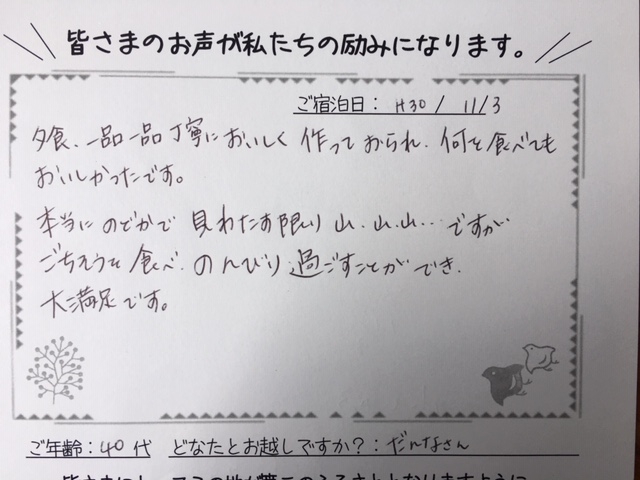 皆さまのお声が私たちの励みになります。
ご宿泊日: H30/ 11/3
夕食、一品一品丁寧においしく作っておられ、何を食べても
おいしかったです。
本当にのどかで見わたす限り山、山、山…ですが
ごちそうを食べ、のんびり過ごすことができ、
大満足です。
ご年齢:40代 どなたとお越しですか?:だんなさん